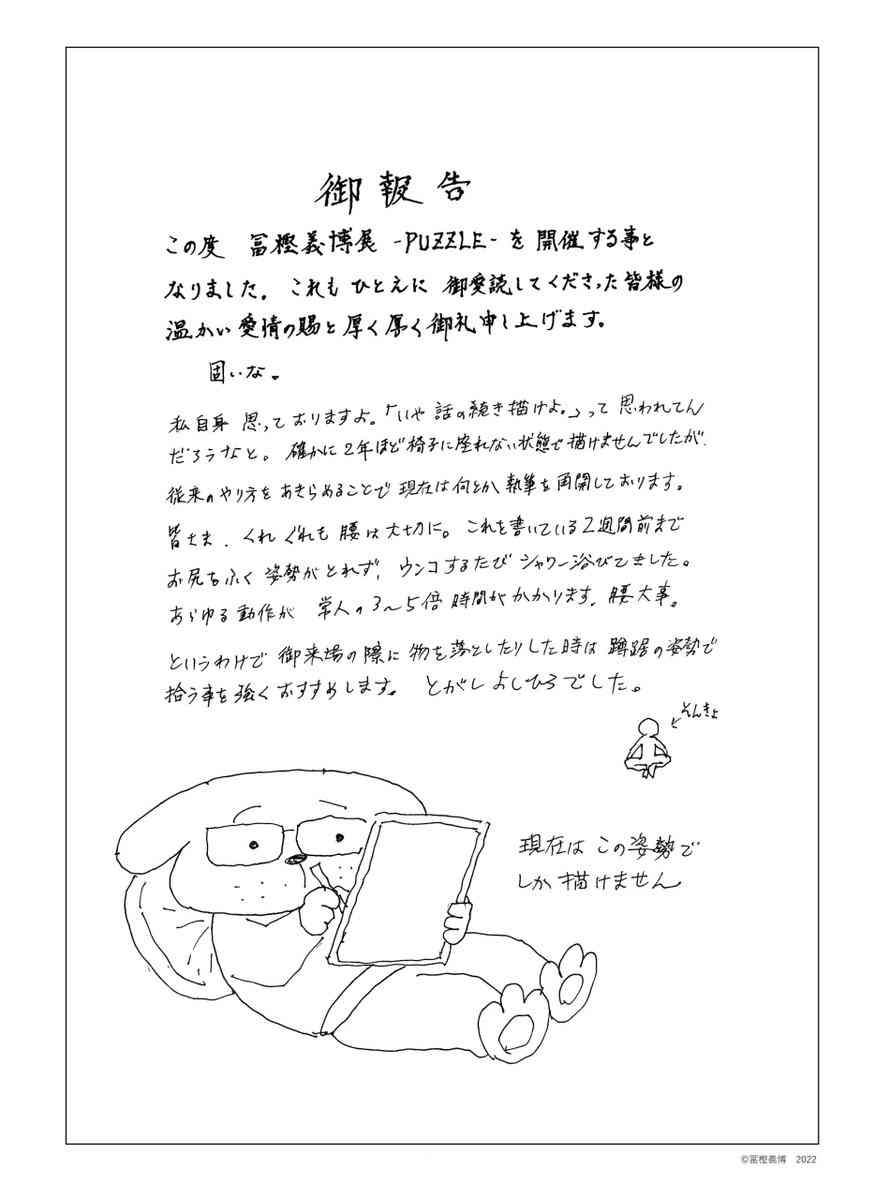 御報告
この度 冨樫義博展 -PUZZLE- を開催する事と
なりました。これもひとえに御愛読してくださった皆様の
温かい愛情の賜と厚く厚く御礼申し上げます。
固いな。
私自身思っておりますよ。「いや話の続き描けよ。」って思われてん
だろうなと。確かに2年ほど椅子に座れない状態で描けませんでしたが、
従来のやり方をあきらめることで現在は何とか執筆を再開しております。
皆さま、くれぐれも腰は大切に。これを書いている2週間前まで
お尻をふく姿勢がとれず、ウンコするたびシャワー浴びてました。
あらゆる動作が常人の3〜5倍時間がかかります。腰大事。
というわけで御来場の際に物を落としたりした時は蹲踞の姿勢で
拾う事を強くおすすめします。 とがしよしひろでした。
←そんきょ
現在はこの姿勢で
しか描けません
©冨樫義博 2022